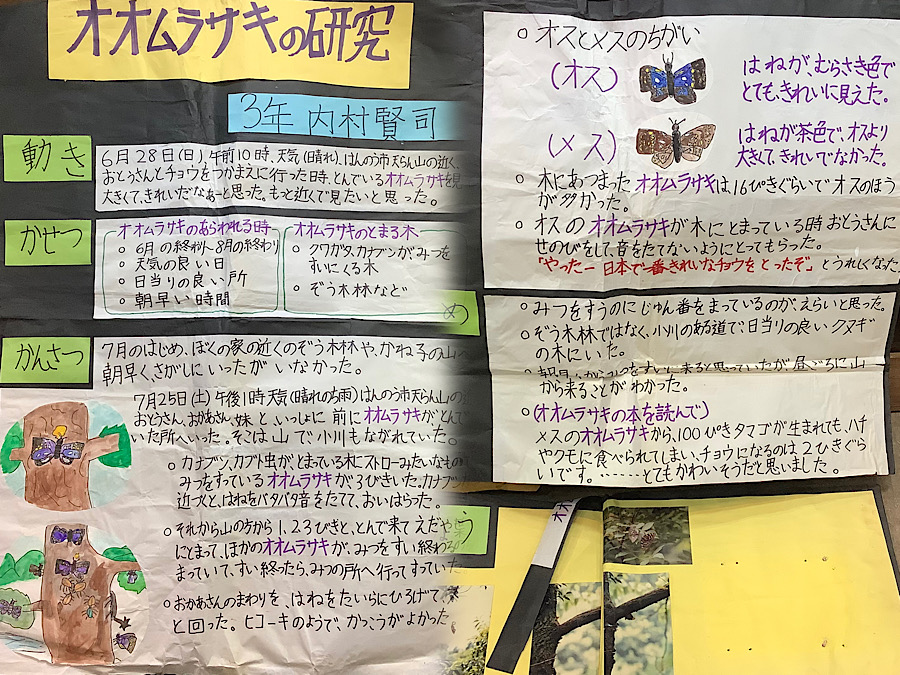 オオムラサキの研究
3年 内村賢司
動き
6月28日(日)、午前10時、天気(晴れ)、はんのう市天らん山の近く、
おとうさんとチョウをつかまえに行った時、とんでいるオオムラサキを見
大きくて、きれいだなぁーと思った。もっと近くで見たいと思った。
かせつ
オオムラサキのあらわれる時
○ 6月の終わり〜8月の終わり
○ 天気の良い日
○ 日当りの良い所
○ 朝早い時間
オオムラサキのとまる木
○ クワガタ、カナブンがみつを
すいにくる木
○ ぞう木林など
かんさつ
7月のはじめ、ぼくの家の近くのぞう木林や、かね子の山へ
朝早く、さがしにいったがいなかった。
7月25日(土)午後1時天気(晴れのち雨)はんのう市天らん山の
おとうさん、おかあさん、妹と、いっしょに前にオオムラサキがとんで
いた所へいった。そこは山で小川もながれていた。
○ カナブン、カブト虫が、とまっている木にストローみたいなもの
みつをすっているオオムラサキが3びきいた。カナブン
近づくと、はねをバタバタ音をたてて、おいはらった。
○ それから山の方から1、2、3びきと、とんで来てえだや
にとまって、ほかのオオムラサキが、みつをすい終わる
まっていて、すい終ったら、みつの所へ行ってすっていた
○ おかあさんのまわりを、はねをたいらにひろげて、
と回った。ヒコーキのようで、かっこうがよかった
め
う
○ オスとメスのちがい
(オス)
はねが、むらさき色で
とても、きれいに見えた。
(メス)
はねが茶色で、オスより
大きくて、きれいでなかった。
○ 木にあつまったオオムラサキは16ぴきぐらいでオスのほう
が多かった。
○ オスのオオムラサキが木にとまっている時おとうさんに
せのびをして、音をたてないようにとってもらった。
「やったー日本で一番きれいなチョウをとったぞ」とうれしくなった
○ みつをすうのにじゅん番をまっているのが、えらいと思った。
○ ぞう木林ではなく、小川のある道で、日当りの良いクヌギ
の木にいた。
来ると思っていたが昼ごろに山
から来ることがわかった。
○ (オオムラサキの本を読んで)
メスのオオムラサキから、100ぴきタマゴが生まれても、ハチ
やクモに食べられてしまい、チョウになるのは2ひきぐら
いです。………とてもかわいそうだと思いました。